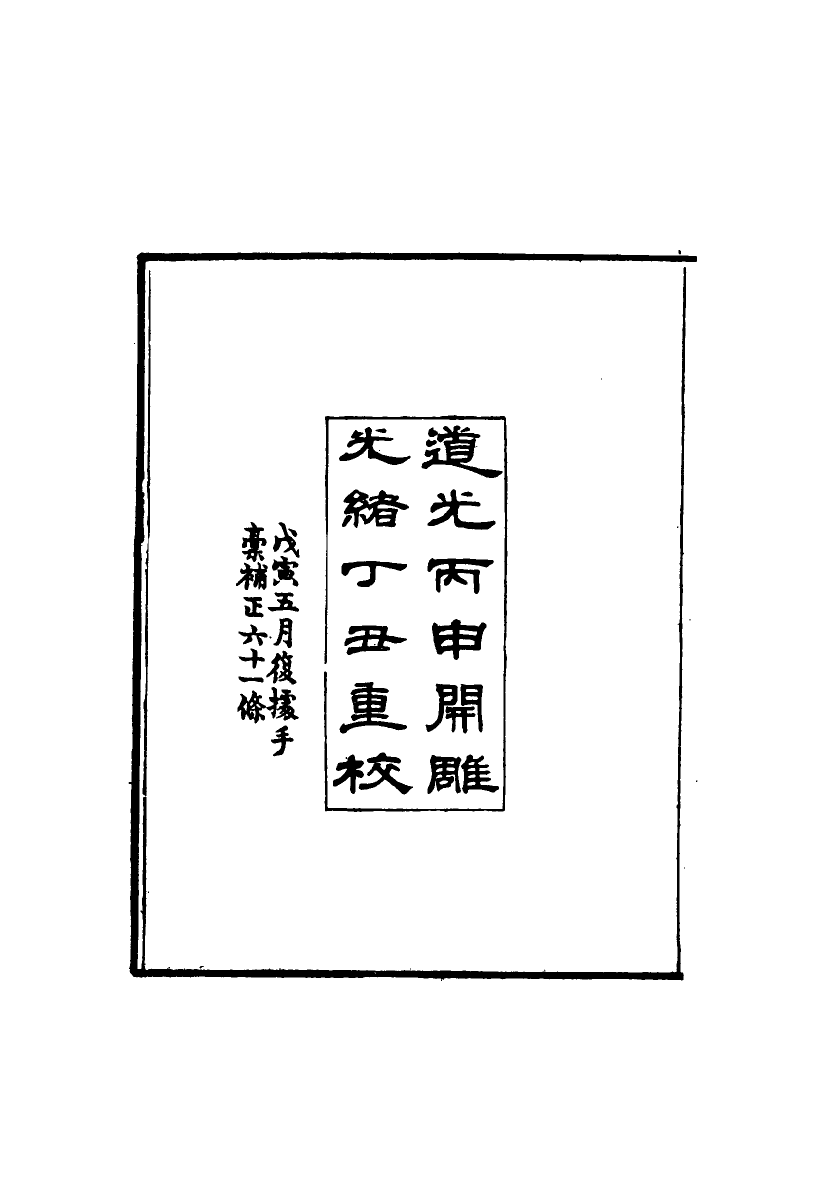 道光丙申開雕
光緒丁丑重校
戊寅五月復據手
稾補正六十一條